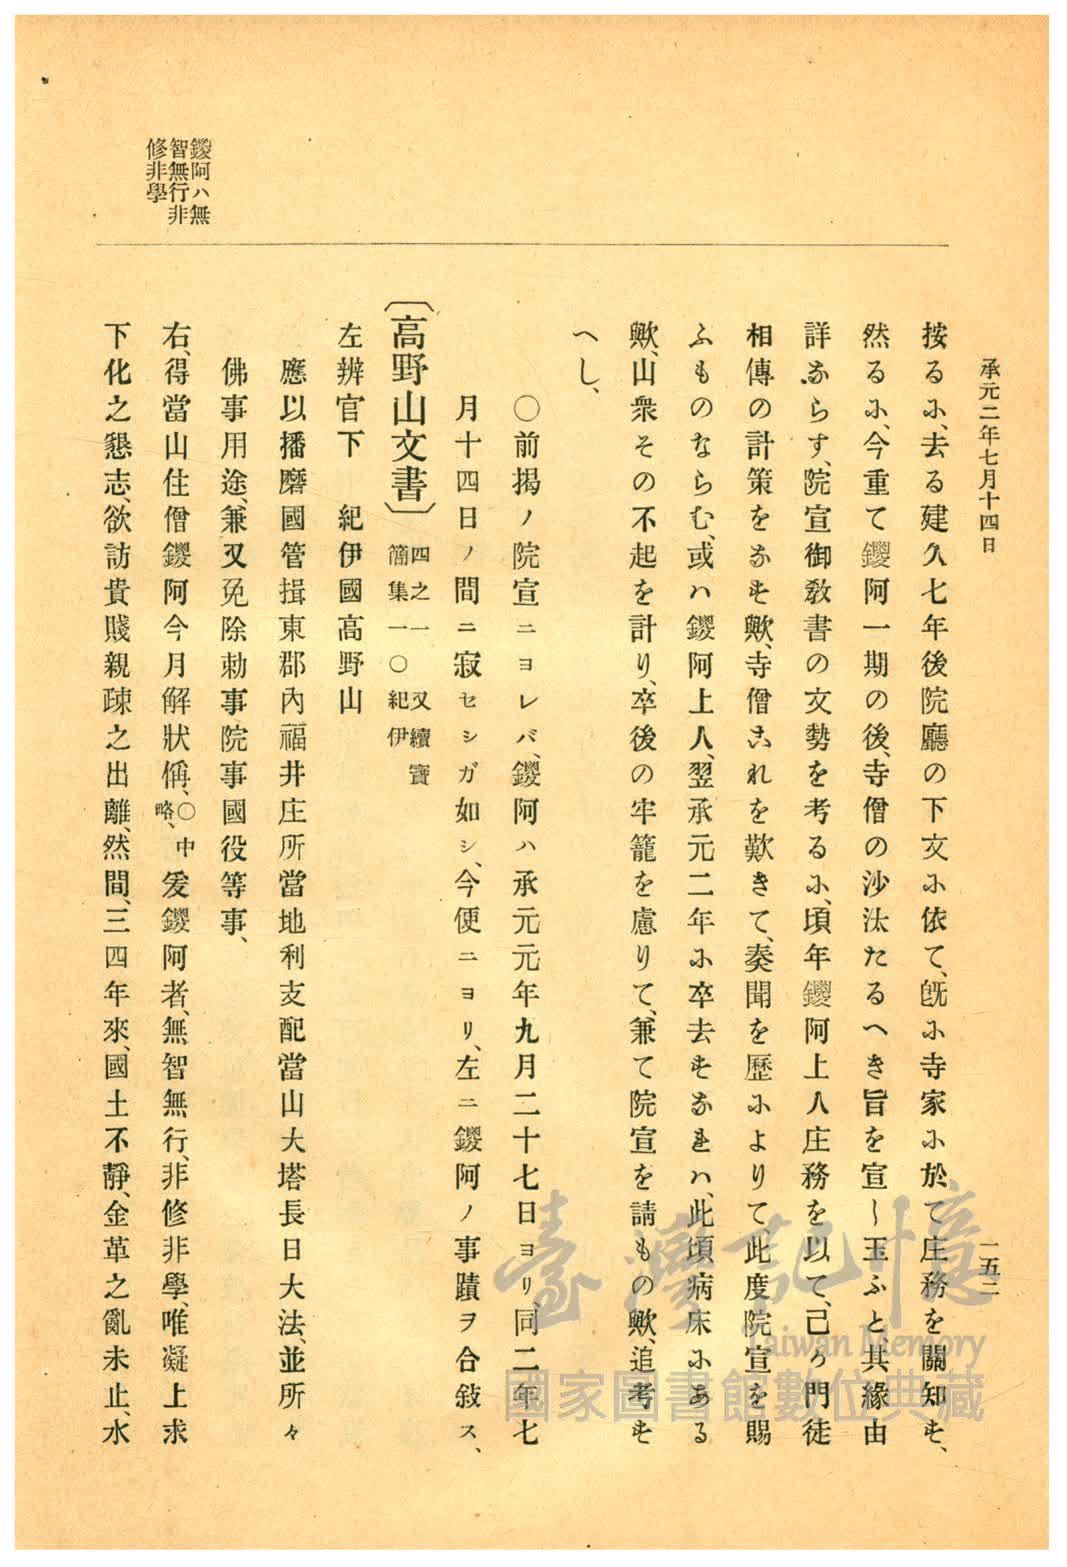 承元二年七月十四日
一五二
按るに、去る建久七年後院廳の下文に依て、既に寺家に於て庄務を關知す、
然るに、今重て鑁阿一期の後、寺僧の沙汰たるへき旨を宣し玉ふと、其緣由
詳ならす、院宣御敎書の文勢を考るに、頃年鑁阿上人庄務を以て、己ヶ門徒
相傳の計策をなす歟、寺僧これを歎きて、奏聞を歷によりて、此度院宣を賜
ふものならむ、或ハ鑁阿上人、翌承元二年に卒去すなれハ、此頃病床にある
歟、山衆その不起を計り、卒後の牢籠を慮りて、兼て院宣を請もの歟、追考す
へし、
〇前揭ノ院宣ニヨレバ、鑁阿ハ承元元年九月二十七日ヨリ、同二年七
月十四日ノ間ニ寂セシガ如シ、今便ニヨリ、左ニ鑁阿ノ事蹟ヲ合敍ス、
〔高野山文書〕四之一 又續寶
簡集一〇 紀伊
左辨官下 紀伊國高野山
應以播磨國管揖東郡內福井庄所當地利支配當山大塔長日大法、並所々
佛事用途、兼又免除勅事院事國役等事、
右、得當山住僧鑁阿今月解狀偁、〇中略、爰鑁阿者、無智無行、非修非學、唯凝上求
下化之懇志、欲訪貴賤親疎之出離、然間、三四年來、國土不靜、金革之亂未止、水
鑁阿ハ無
智無行非
修非學
臺灣記憶
Taiwan Memory
國家圖書館數位典藏